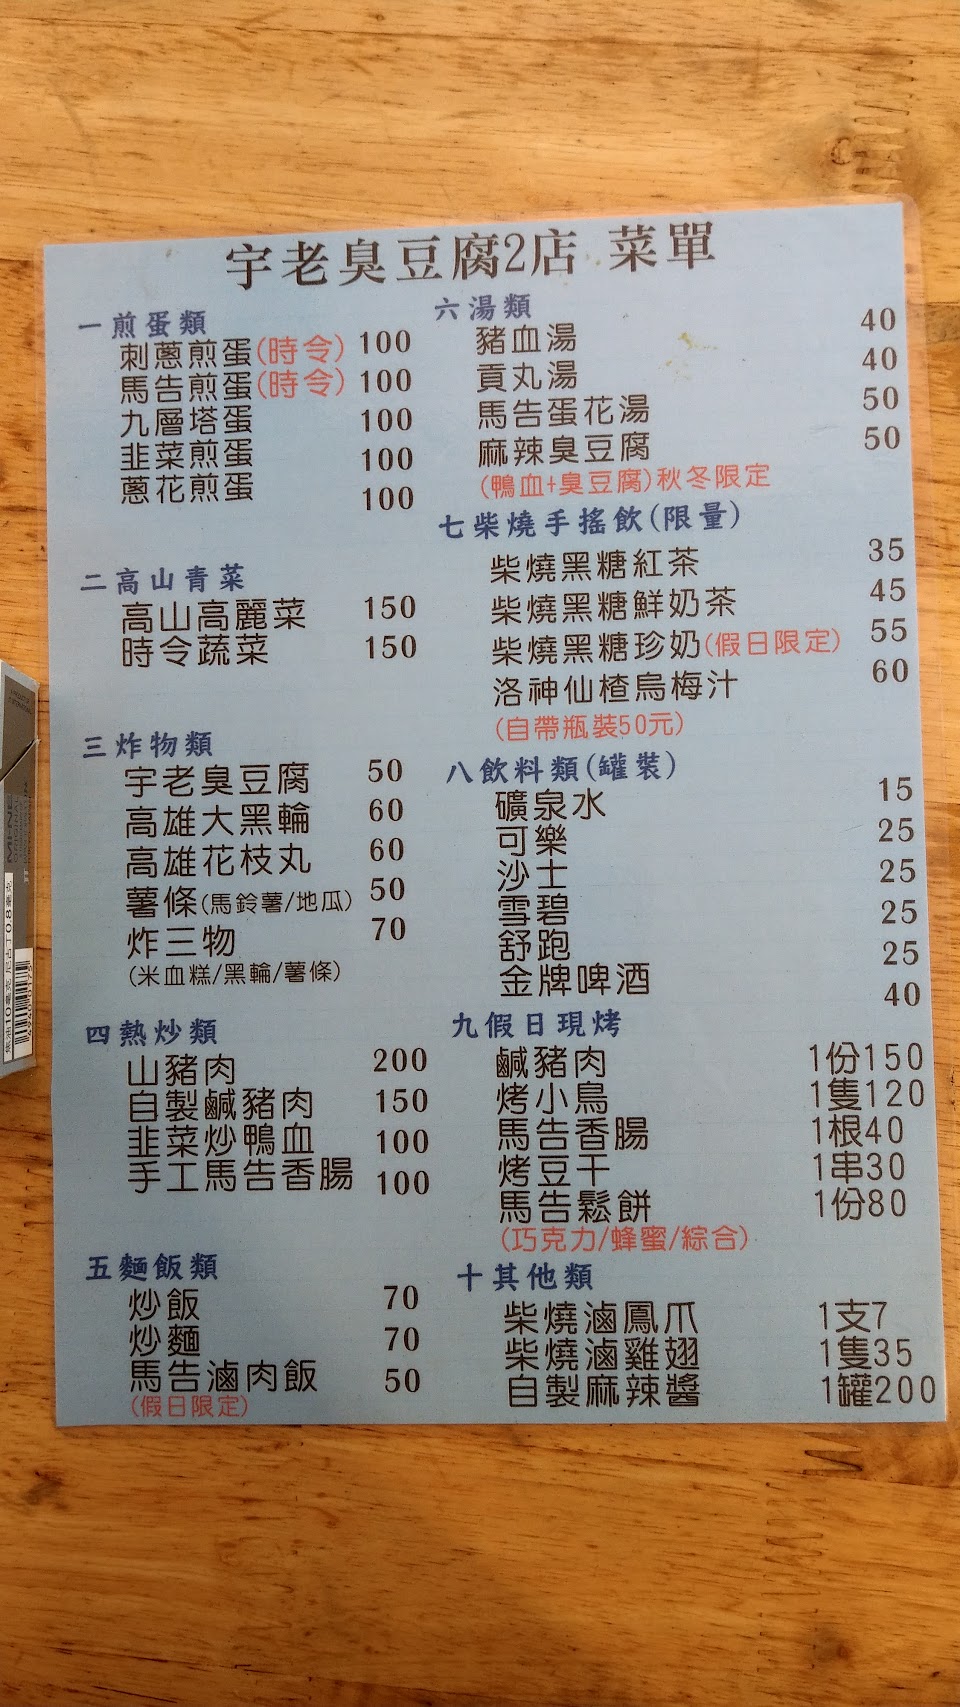 宇老臭豆腐2店 菜單
一煎蛋類
刺蔥煎蛋(時令) 100
馬告煎蛋(時令) 100
九層塔蛋 100
韭菜煎蛋 100
蔥花煎蛋 100
二高山青菜
高山高麗菜 150
時令蔬菜 150
三炸物類
宇老臭豆腐 50
高雄大黑輪 60
高雄花枝丸 60
薯條(馬鈴薯/地瓜) 50
炸三物 70
(米血糕/黑輪/薯條)
四熱炒類
山豬肉 200
自製鹹豬肉 150
韭菜炒鴨血 100
手工馬告香腸 100
五麵飯類
炒飯 70
炒麵 70
馬告滷肉飯 50
(假日限定)
六湯類
豬血湯 40
貢丸湯 40
馬告蛋花湯 50
麻辣臭豆腐 50
(鴨血+臭豆腐)秋冬限定
七柴燒手搖飲(限量)
柴燒黑糖紅茶 35
柴燒黑糖鮮奶茶 45
柴燒黑糖珍奶(假日限定) 55
洛神仙楂烏梅汁 60
(自帶瓶裝50元)
八飲料類(罐裝)
礦泉水 15
可樂 25
沙士 25
雪碧 25
舒跑 25
金牌啤酒 40
九假日現烤
鹹豬肉 1份150
烤小鳥 1隻120
馬告香腸 1根40
烤豆干 1串30
馬告鬆餅 1份80
(巧克力/蜂蜜/綜合)
十其他類
柴燒滷鳳爪 1支7
柴燒滷雞翅 1隻35
自製麻辣醬 1罐200
焦油10毫克 尼古丁0.8毫克